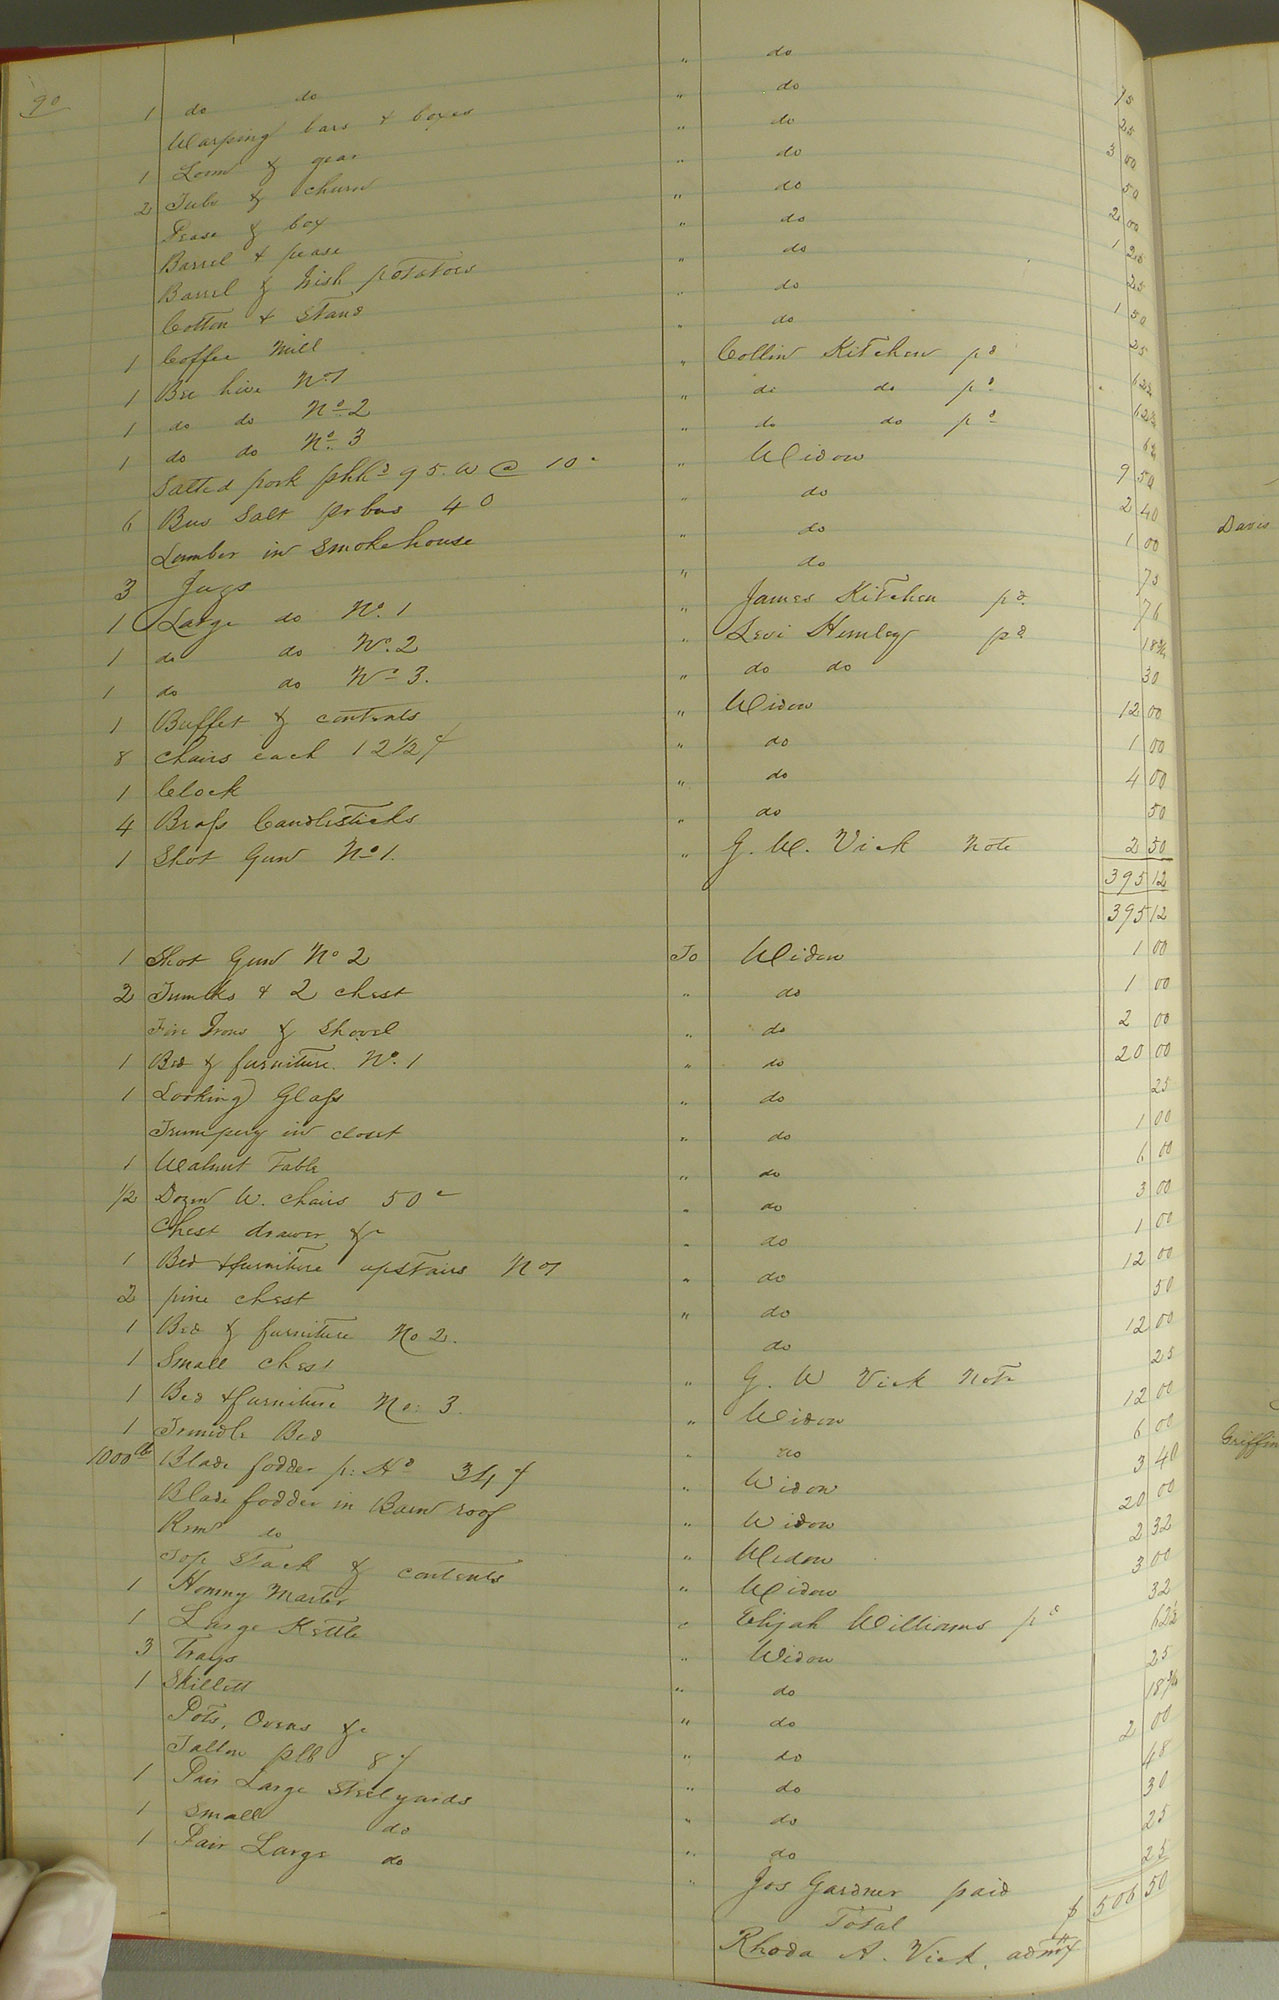 90
1 do do " do 75
Warping bars & boxes " do 25
1 Loom & gear " do 3 00
2 Tubs & churn " do 50
Pease & box " do 2 00
Barrel & pease " do 1 25
Barrel & Irish potatoes " do 25
Cotton & Stand " do 1 50
1 Coffee Mill " do 25
1 Bee hive No 1 " Collin Kitchen pd 62½
1 do do No 2 " do do pd 62½
1 do do No 3 " do do pd 62
Salted pork phhd 95. w @ 10c " Widow 9 50
6 Bus Salt pr bus 40 " do 2 40
Lumber in Smokehouse " do 1 00
3 Jugs " do 75
1 Large do No. 1 " James Kitchen pd. 76
1 do do No. 2 " Levi Humley pd 18¾
1 do do No 3. " do do 30
1 Buffet & contents " Widow 12 00
8 chairs each 12½ ¢ " do 1 00
1 Clock " do 4 00
4 Brass Candlesticks " do 50
1 Shot Gun No 1. " G. W. Vick Note 2 50
395 12
395 12
1 Shot Gun No 2 To Widow 1 00
2 Trunks & 2 chest " do 1 00
Fire Irons & Shovel " do 2 00
1 Bed & furniture. No. 1 " do 20 00
1 Looking Glass " do 25
Trumpery in closet " do 1 00
1 Walnut Table " do 6 00
1/2 Dozen W. chairs 50c " do 3 00
Chest drawer &c " do 1 00
1 Bed & furniture upstairs No 1 " do 12 00
2 pine chest " do 50
1 Bed & furniture No 2. do 12 00
1 Small chest " G. W Vick Note 25
1 Bed & furniture No: 3. " Widow 12 00
1 Trundle Bed " do 6 00
1000 lb Blade fodder p: Hd 34 ¢ " Widow 3 40
Blade fodder in Barn roof " Widow 20 00
Remr do " Widow 2 32
Top Stack & contents " Widow 3 00
1 Hommy Morter " Elijah Williams pd 32
1 Large Kettle " Widow 62½
3 Trays " do 25
1 Skillett " do 18¾
Pots, Ovens &c " do 2 00
Tallow plb 8 ¢ " do 48
1 Pair Large Steelyards " do 30
1 Small do " do 25
1 Pair Large do " Jos Gardner paid 25
Total $ 506 50
Rhoda A. Vick, admtx
Davis
Griffin